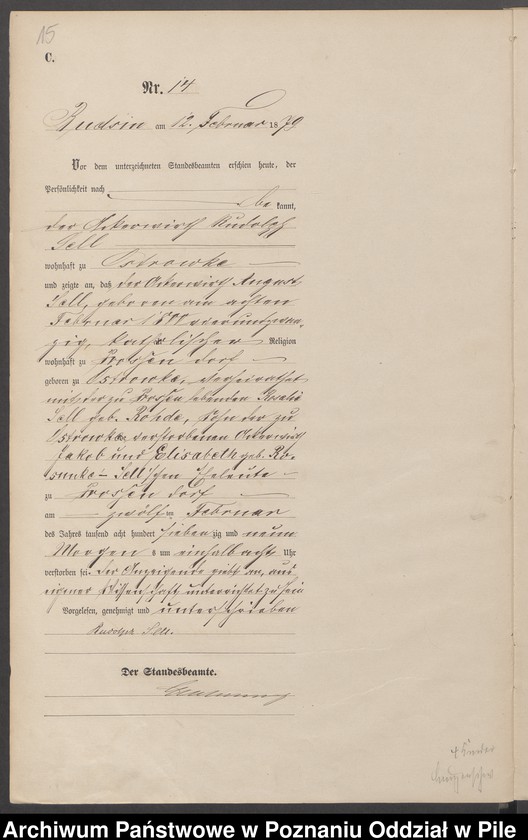 15
C.
Nr. 14
Rudsin am 12. Februar 1879
Vor dem unterzeichneten Standesbeamten erschien heute, der
Persönlichkeit nach
be kannt,
der Ackerwirth Rudolph
Sell
wohnhaft zu Ostrowke
und zeigte an, daß der Ackerwirth August
Sell, geboren am achten
Februar 18 vierundzwan-
zig, katholischer Religion
wohnhaft zu Brossen Dorf
geboren zu Ostrowke, verheirathet
mit der zu Brossen lebenden Rosalie
Sell geb. Rohde, Sohn der zu
Ostrowke verstorbenen Ackerwirth
Jakob und Elisabeth geb. Ro-
Sell'schen Eheleute
zu Brossen Dorf
am zwölften Februar
des Jahres tausend acht hundert siebenzig und neun
Morgens um einhalbacht Uhr
verstorben sei. Der Anzeigende giebt an, aus
eigener Wissenschaft unterrichtet zu sein
Vorgelesen, genehmigt und unterschrieben
Rudolph Sell.
Der Standesbeamte.
4 Kinder
Archiwum Państwowe w Poznaniu Oddział w Pile